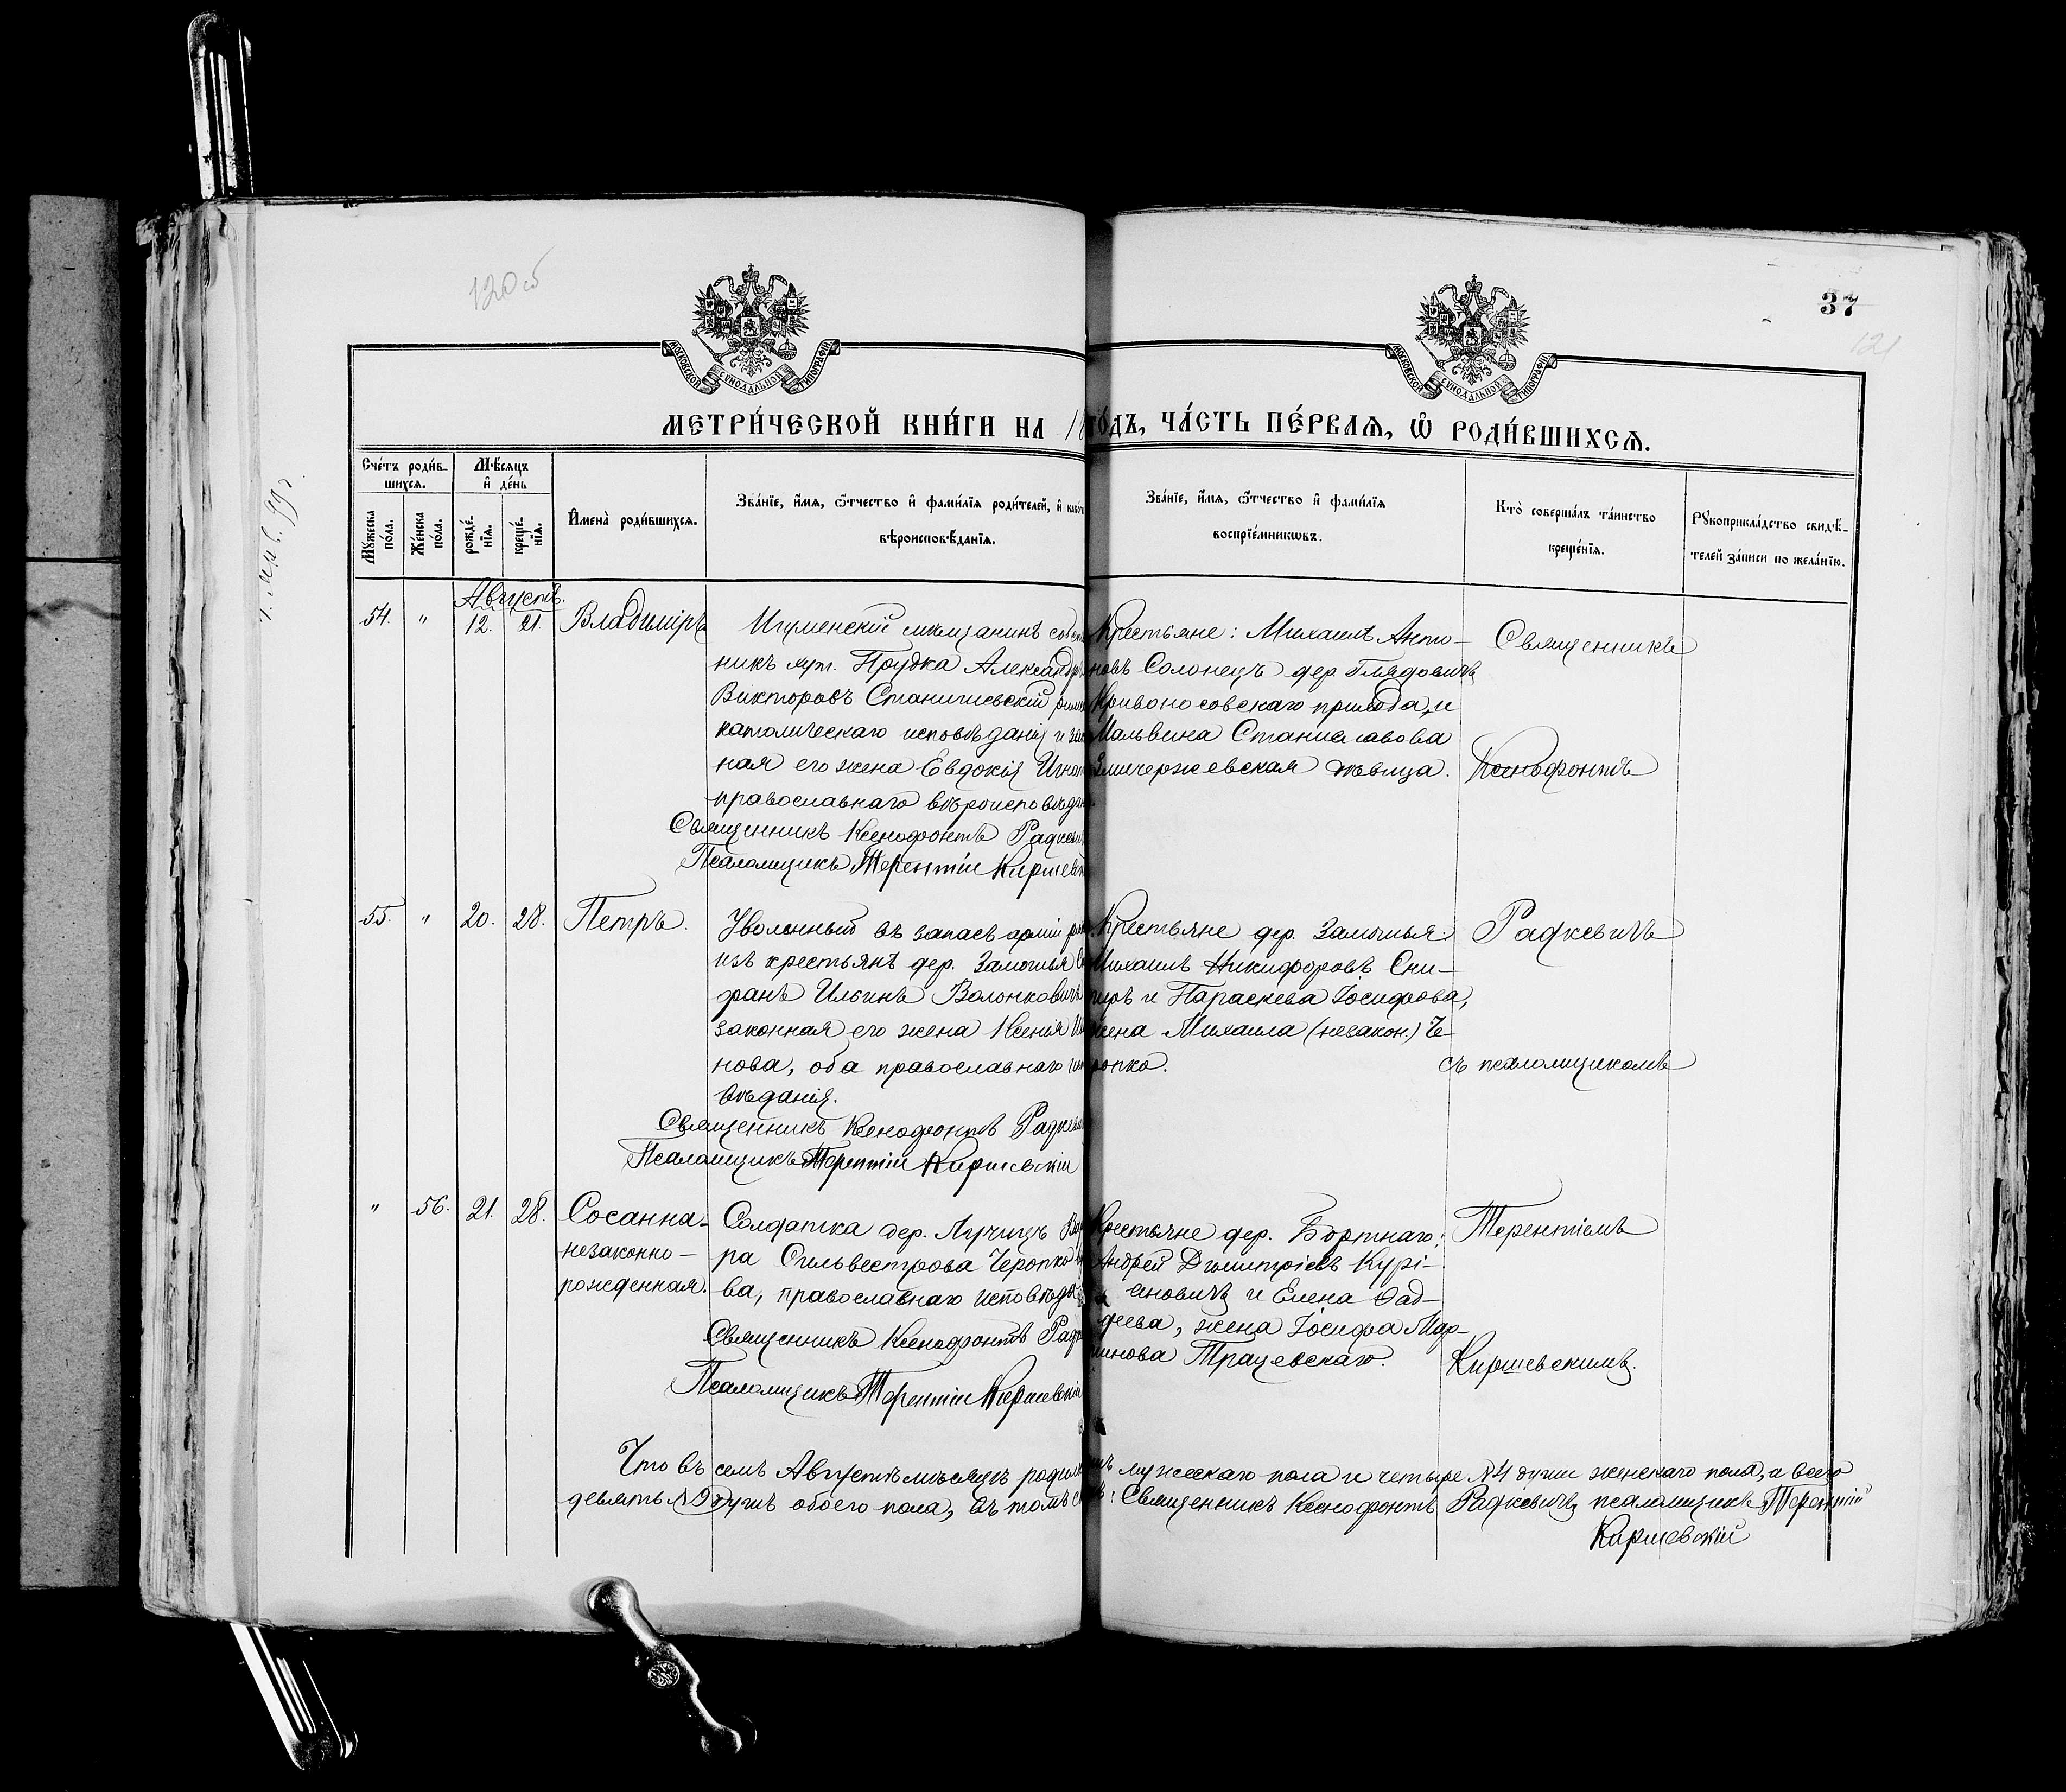 120об
37
121
МОСКОВСКОЙ СѴНОДАЛЬНОЙ ТИПОГРАФІИ
МОСКОВСКОЙ СѴНОДАЛЬНОЙ ТИПОГРАФІИ
МЕТРИ́ЧЕСКОЙ КНИ́ГИ НА 18
ГО́ДЪ, ЧА́СТЬ ПЕ́РВАѦ, Ѡ҆ РОДИ́ВШИХСѦ.
Сче́тъ роди́в-
шихсѧ.
Мꙋ́жеска по́ла.
Же́нска по́ла.
Мѣ́сѧцъ
и҆ де́нь
рожде́-
нїѧ.
креще́-
нїѧ.
И҆мена̀ роди́вшихсѧ.
Зва́нїе, и҆́мѧ, ѻ҆́тчество и҆ фами́лїѧ роди́телей, и҆
вѣроисповѣ́данїѧ.
Зва́нїе, и҆́мѧ, ѻ҆́тчество и҆ фами́лїѧ
воспрїе́мникѡвъ.
Кто̀ соверша́лъ та́инство
креще́нїѧ.
Рꙋкоприкла́дство свидѣ́-
телей за́писи по жела́нїю.
Августъ.
54. " 12. 21. Владиміръ
Игуменскій мѣщанинъ
никъ Прудка Александръ
Викторовъ Станишевскій
католическаго исповѣданія и
ная его жена Евдокія
православнаго вѣроисповѣдан
Священникъ Ксенофонтъ Радкеви
Псаломщикъ Терентій Киршевск
Крестьяне: Михаилъ Анто-
новъ Солонецъ дер. Глядовичъ
Кривоносовскаго прихода, и
Мальвина Станиславова
дѣвица.
Священникъ
Ксенофонтъ
55. " 20. 28. Петръ.
Уволенный въ запасъ арміи
изъ крестьянъ дер. Замошья
фанъ Ильинъ Волонковичъ
законная его жена Ксенія
нова, оба православнаго испо
вѣданія.
Священникъ Ксенофонтъ Радкев
Псаломщикъ Терентій Киршевскій
Крестьяне дер. Замошья:
Михаилъ Никифоровъ Сни-
и Параскева Іосифова,
жена Михаила (незакон.) Че-
ропко.
Радкевичъ
съ псаломщикомъ
" 56. 21. 28. Сосанна-
незаконно-
рожденная.
Солдатка дер. Лучицъ Вар
ра Сильвестрова Черопко
ва, православнаго исповѣда
Священникъ Ксенофонтъ Радк
Псаломщикъ Терентій Киршевскій
Крестьяне дер. Бортнаго:
Андрей Димитріевъ Курі-
ановичъ и Елена Ѳад-
деева, жена Іосифа Мар-
тинова Трацевскаго.
Терентіемъ
Киршевскимъ.
Что въ семъ Августѣ мѣсяцѣ родил
мужескаго пола и четыре №4 души женскаго пола, а всего
девять №9 душъ обоего пола, въ томъ
Священникъ Ксенофонтъ Радкевичъ, псаломщикъ Терентій
Киршевскій